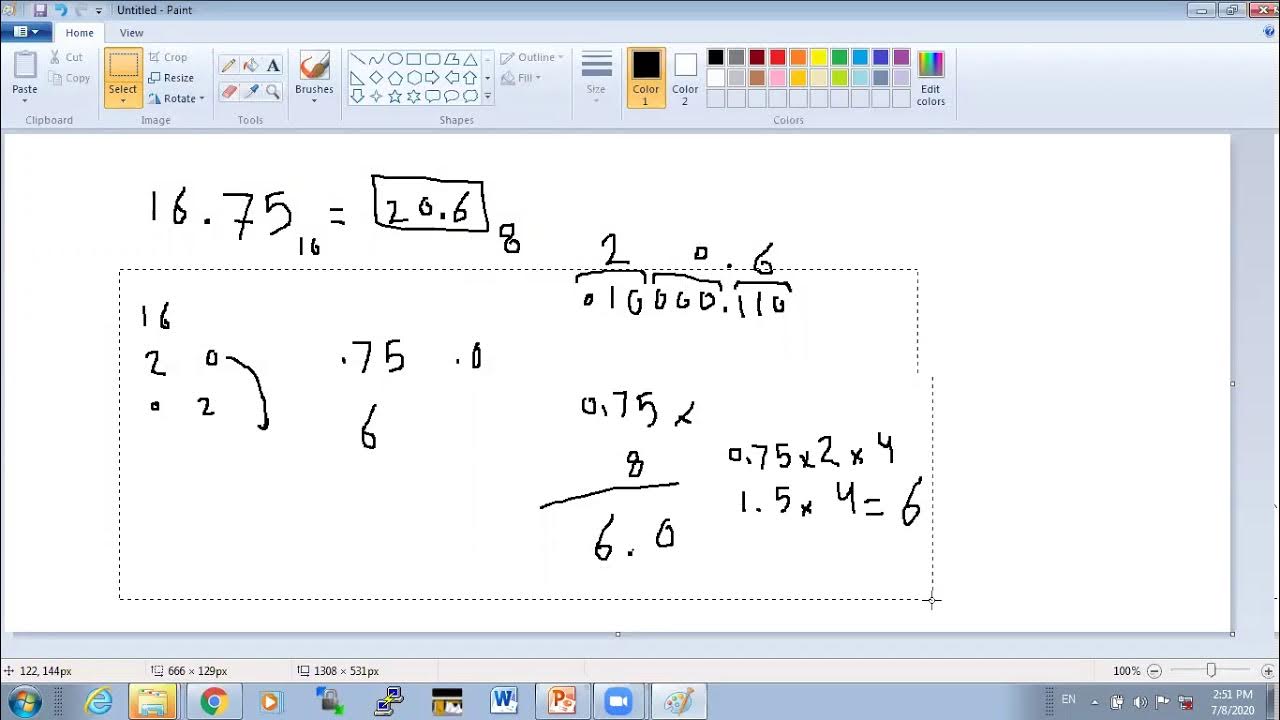 Untitled - Paint
Home View
Paste
Cut
Copy
Clipboard
Select
Crop
Resize
Rotate
Image
Tools
Brushes
Shapes
Outline
Fill
Size
Color 1
Color 2
Colors
Edit colors
16.75 16 = 20.6 8
2 0.6
010 000.110
16
2 0
0 2
.75 .0
6
0.75 x
8
6.0
0.75 x 2 x 4
1.5 x 4 = 6
122, 144px
666 × 129px
1308 × 531px
100%
EN
2:51 PM
7/8/2020